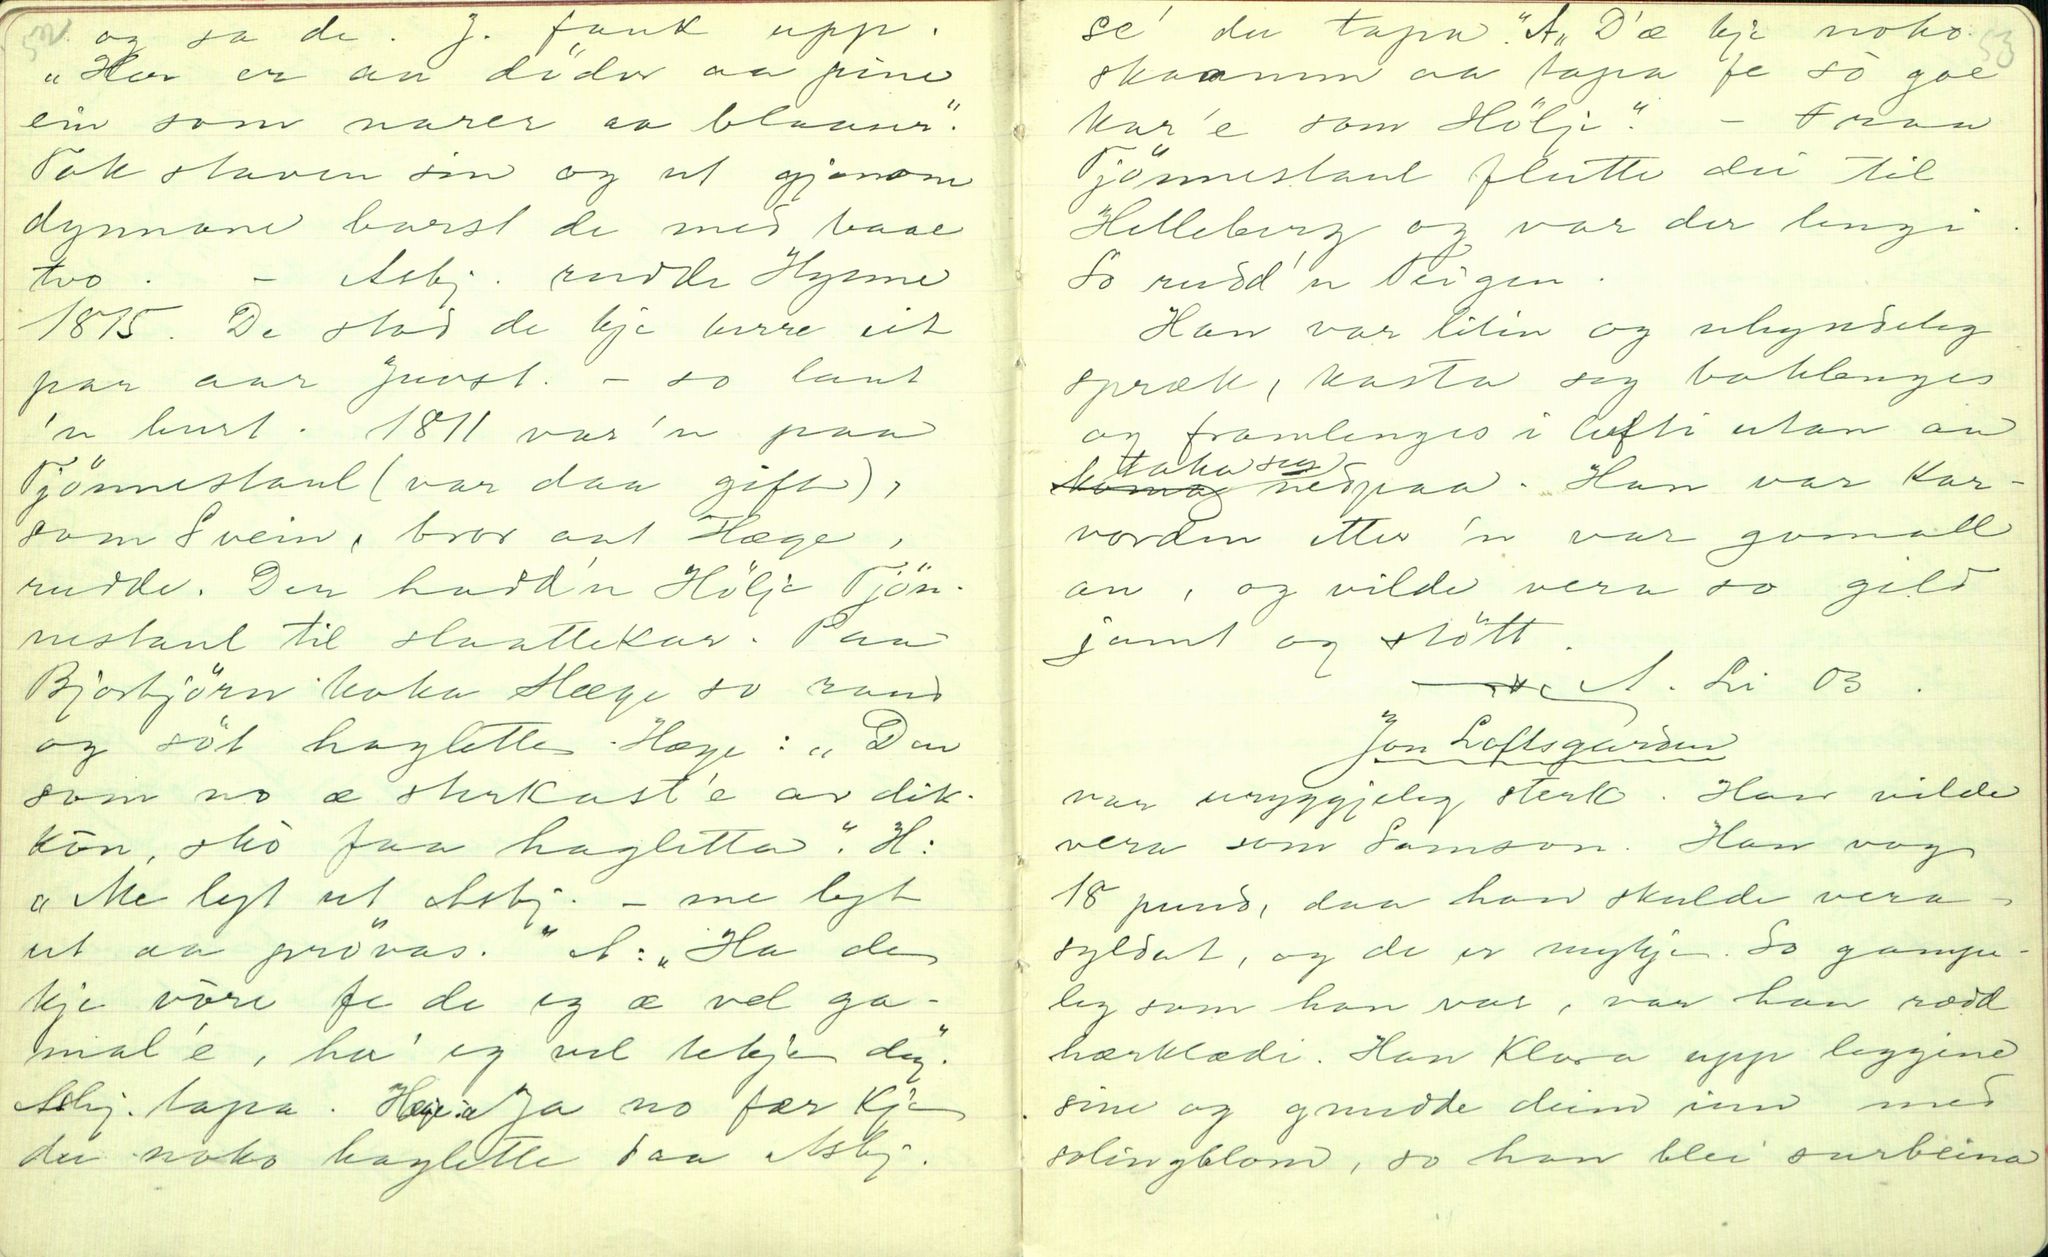 52
og sa de. J. fauk upp.
"Her er an döder aa pine
ein som narer aa blaaser".
Tok staven sin og ut gjenom
dynnane barst de med baae
two. - Asbj. rudde Hynne
1815. De stod de kje berre eit
par aar Juvst. - so laut
'n burt. 1811 var 'n paa
Tjönnestaul (var daa gift),
som Svein, bror aat Hæge,
rudde. Der hadd'n Hölje Tjön-
nestaul til slaattekar. Paa
Bjorbjörn koka Hæge so raud
og söt hagletta. Hæge: "Den
som no æ sterkast'e av dik-
kön, sko faa hagletta". H:
"Me lyt ut Asbj. - me lyt
ut aa prövas." A: "Ha de
kje vöre fe de eg æ vel ga-
mal'e, ha' eg vel tekje deg".
Asbj. tapa. Hæge: "Ja no fær kje
du noko hagletta daa Asbj.
53
se' du tapa". A "D'æ kje noko
skaamm aa tapa fe so goe
kar'e som Hölje". - Fraa
Tjönnestaul flutte dei til
Helleberg og var der lengi.
So rudd'n Teigen.
Han var litin og uhyndeleg
spræk, kasta seg baklenges
og framlenges i lufti utan an
taka seg
koma nedpaa. Han var kar-
vorden etter 'n var gamall
an, og vilde vera so gild
jamt og stött.
A. Li 03.
Jon Loftsgarden
var uryggjeleg sterk. Han vilde
vera som Samson. Han vog
18 pund, daa han skulde vera
syldat, og de er mykje. So gampe-
leg som han var, var han rædd
hærklædi. Han klora upp leggine
sine og gnudde deim inn med
solingblom, so han blei surbeina